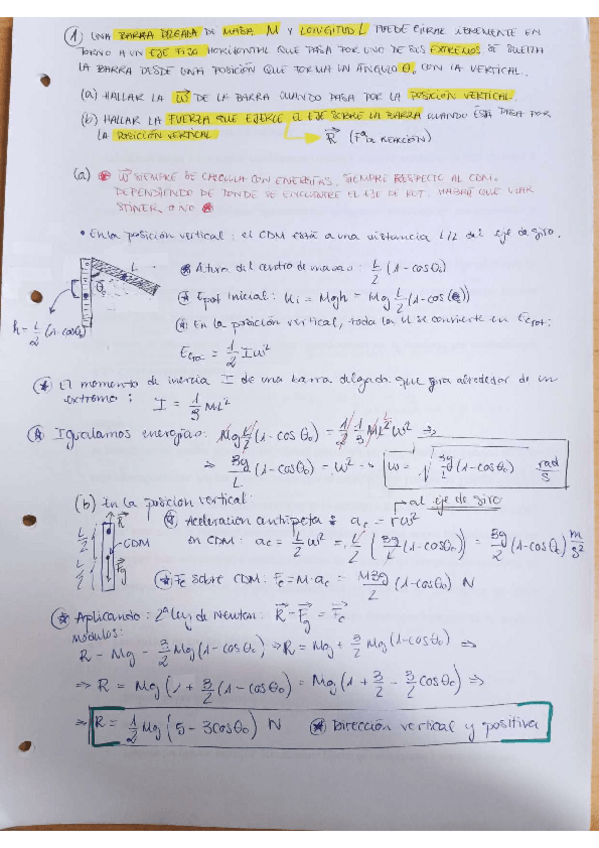 ① UNA BARRA DELGADA DE MASA M Y LONGITUD L PUEDE GIRAR LIBREMENTE EN
TORNO A UN EJE FIJO HORIZONTAL QUE PASA POR UNO DE SUS EXTREMOS. SE SUELTA
LA BARRA DESDE UNA POSICIÓN QUE FORMA UN ÁNGULO θ₀ CON LA VERTICAL.
(a) HALLAR LA w⃗ DE LA BARRA CUANDO PASA POR LA POSICIÓN VERTICAL.
(b) HALLAR LA FUERZA QUE EJERCE EL EJE SOBRE LA BARRA CUANDO ÉSTA PASA POR
LA POSICIÓN VERTICAL
R⃗ (Fza DE REACCIÓN)
(a) w⃗ SIEMPRE SE CALCULA CON ENERGÍAS, SIEMPRE RESPECTO AL CDM.
DEPENDIENDO DE DONDE SE ENCUENTRE EL EJE DE ROT. HABRÁ QUE USAR
STINER O NO
• En la posición vertical: el CDM está a una distancia L/2 del eje de giro.
L
θ₀
h = L/2 (1-cosθ₀)
Altura del centro de masas: L/2 (1-cosθ₀)
Epot inicial: Ui = Mgh = Mg L/2 (1-cos(θ₀))
En la posición vertical, toda la U se convierte en Ecrot:
Ecrot = 1/2 I w²
El momento de inercia I de una barra delgada que gira alrededor de un
extremo: I = 1/3 ML²
Igualamos energías: Mg L/2 (1-cosθ₀) = 1/2 1/3 ML² w² ⇒
⇒ 3g/L (1-cosθ₀) = w² → w = √ 3g/L (1-cosθ₀) rad/s
(b) En la posición vertical:
al eje de giro
Aceleración centrípeta: ac = rw²
En CDM: ac = L/2 w² = L/2 (3g/L (1-cosθ₀)) = 3g/2 (1-cosθ₀) m/s²
L/2
L/2
R⃗
CDM
F⃗g
Fc sobre CDM: Fc = M·ac = M3g/2 (1-cosθ₀) N
Aplicando: 2ª Ley de Newton: R⃗ - F⃗g = F⃗c
módulos:
R - Mg - 3/2 Mg (1-cosθ₀) ⇒ R = Mg + 3/2 Mg (1-cosθ₀) ⇒
⇒ R = Mg (1 + 3/2 (1-cosθ₀) = Mg (1 + 3/2 - 3/2 cosθ₀) ⇒
⇒ R = 1/2 Mg (5 - 3cosθ₀) N Dirección vertical y positiva